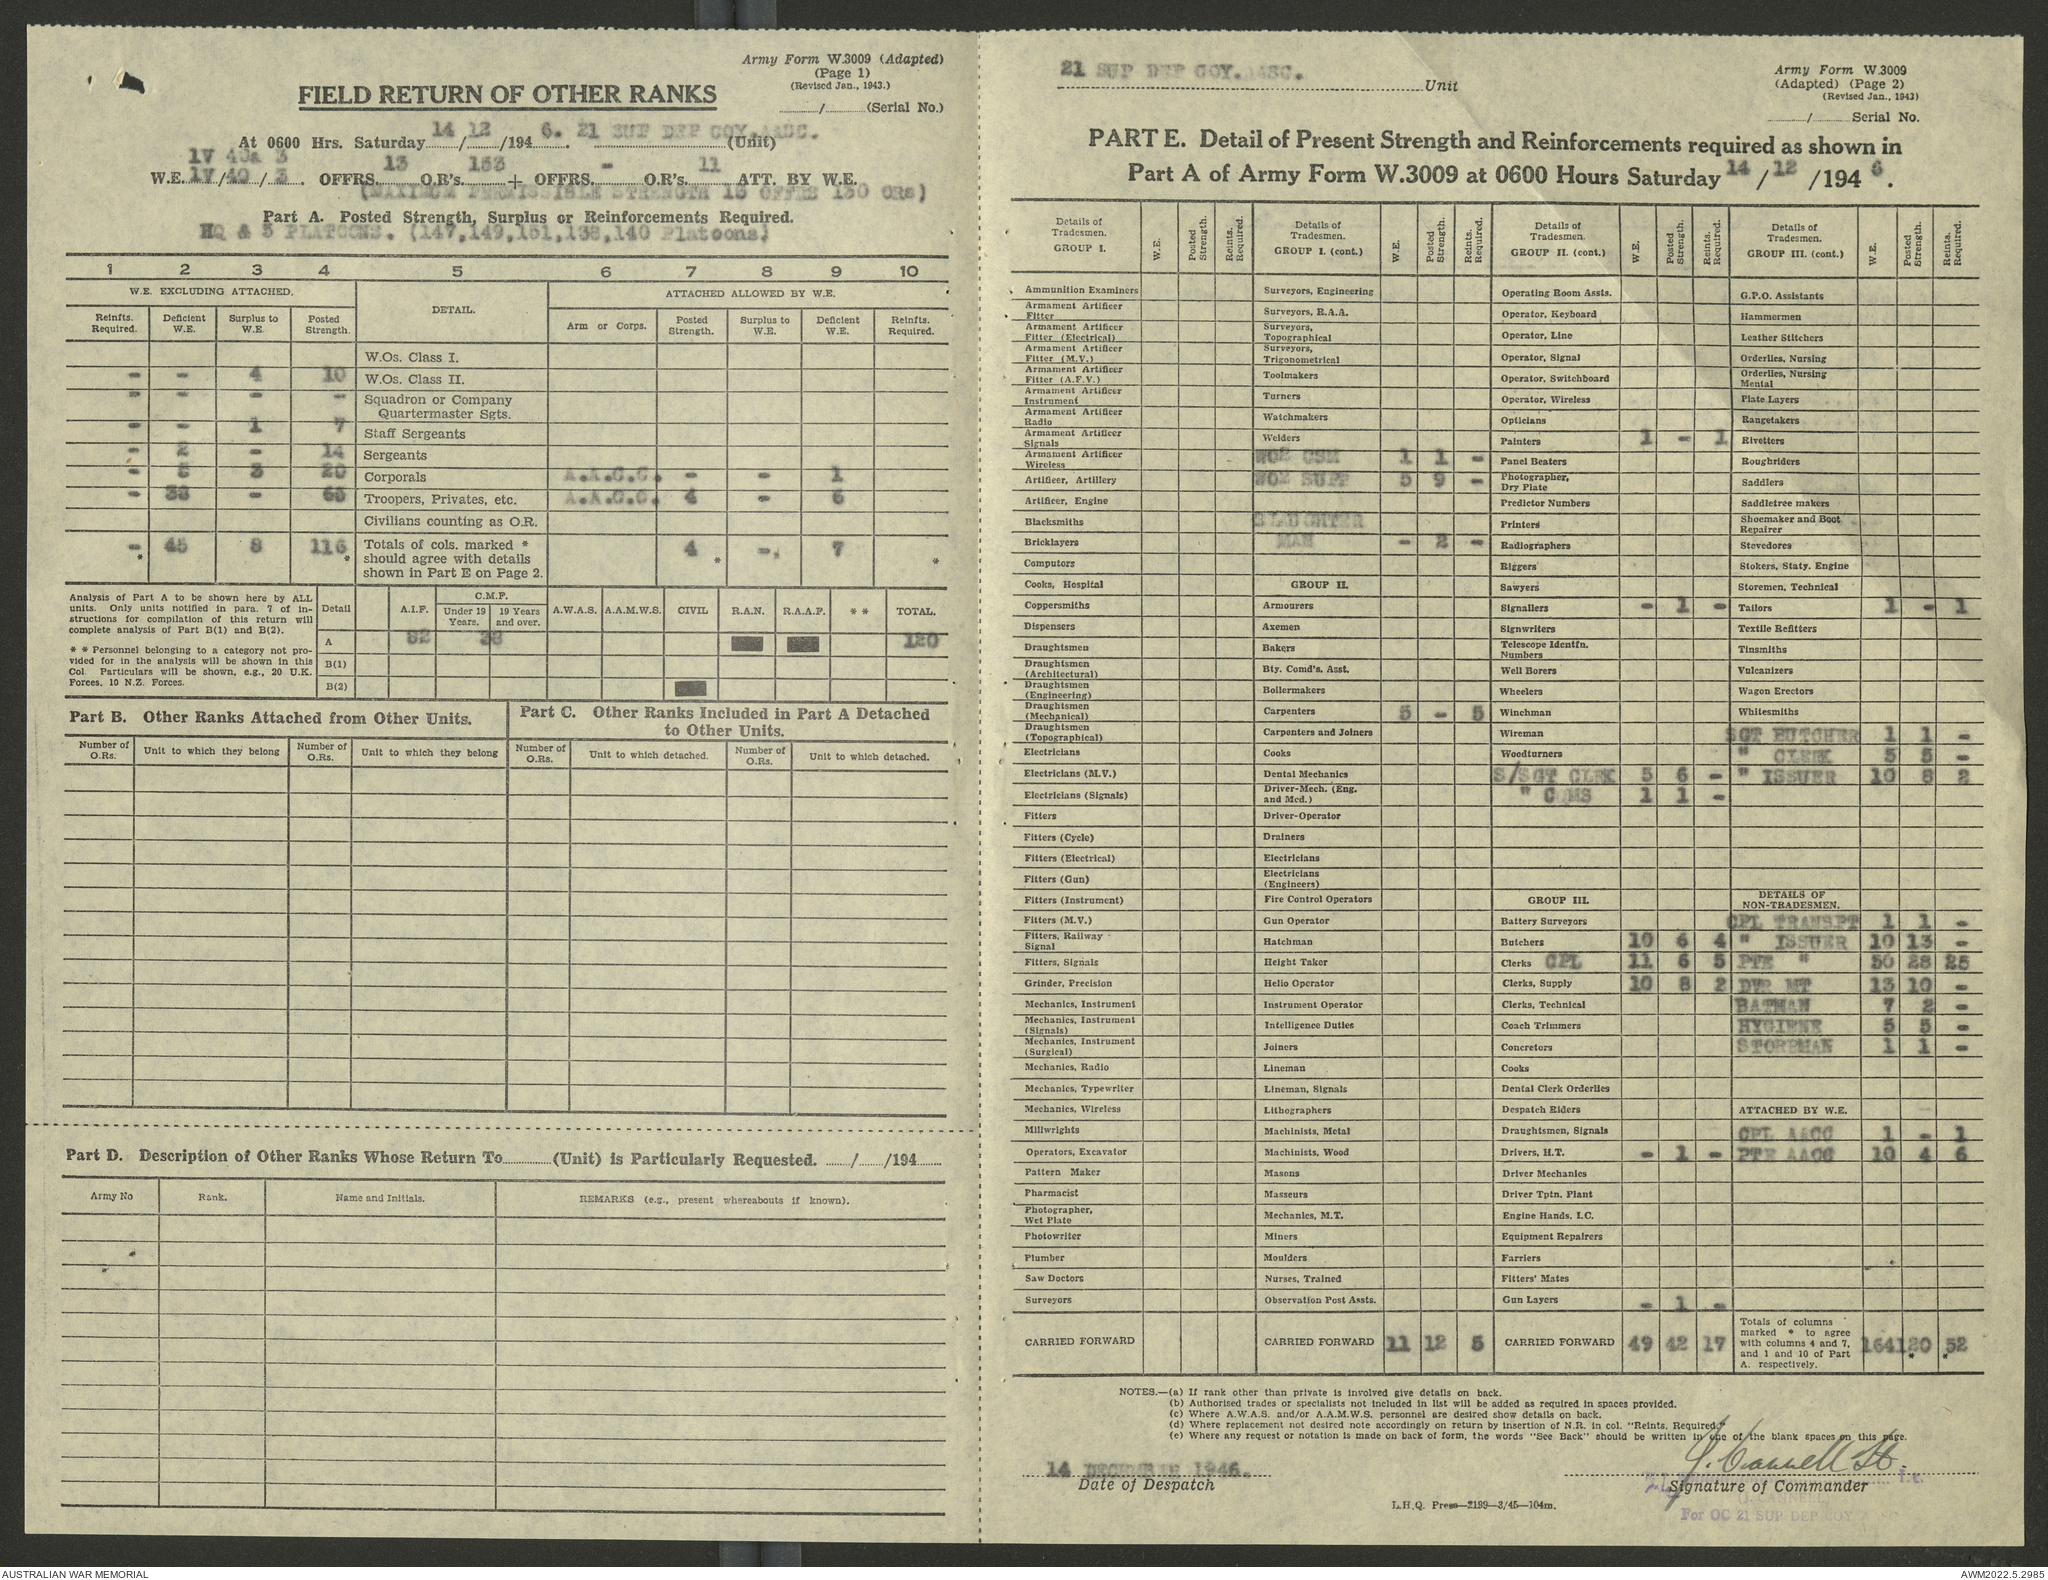 Army Form W.3009 (Adapted)
(Page 1)
(Revised Jan., 1943.)
FIELD RETURN OF OTHER RANKS
......../.......... (Serial No.)
At 0600 Hrs. Saturday 14/12/1946. 21 SUP DEP COY. AASC. (Unit)
1V 40a 3
W.E. 1V/40/3. OFFRS. 13 O.R's. 153 + OFFRS. - O.R's. 11 ATT. BY W.E.
(MAXIMUM PERMISSIBLE STRENGTH 13 OFFRS 130 ORs)
Part A. Posted Strength, Surplus or Reinforcements Required.
HQ & 5 PLATOONS. (147,149,151,138,140 Platoons)
1 2 3 4 5 6 7 8 9 10
W.E. EXCLUDING ATTACHED. DETAIL. ATTACHED ALLOWED BY W.E.
Reinfts. Required. Deficient W.E. Surplus to W.E. Posted Strength. Arm or Corps. Posted Strength. Surplus to W.E. Deficient W.E. Reinfts. Required.
W.Os. Class I.
- - 4 10 W.Os. Class II.
- - - - Squadron or Company Quartermaster Sgts.
- - 1 7 Staff Sergeants
- 2 - 14 Sergeants
- 5 3 20 Corporals A.A.C.C. - - 1
- 38 - 65 Troopers, Privates, etc. A.A.C.C. 4 - 6
Civilians counting as O.R.
- * 45 8 116 * Totals of cols. marked * should agree with details shown in Part E on Page 2. 4 * - 7 *
Analysis of Part A to be shown here by ALL units. Only units notified in para. 7 of instructions for compilation of this return will complete analysis of Part B(1) and B(2).
* * Personnel belonging to a category not provided for in the analysis will be shown in this Col. Particulars will be shown, e.g., 20 U.K. Forces, 10 N.Z. Forces.
Detail A.I.F. C.M.F. Under 19 Years. 19 Years and over. A.W.A.S. A.A.M.W.S. CIVIL R.A.N. R.A.A.F. * * TOTAL.
A 82 38 120
B(1)
B(2)
Part B. Other Ranks Attached from Other Units.
Part C. Other Ranks Included in Part A Detached to Other Units.
Number of O.Rs. Unit to which they belong Number of O.Rs. Unit to which they belong Number of O.Rs. Unit to which detached. Number of O.Rs. Unit to which detached.
Part D. Description of Other Ranks Whose Return To............(Unit) is Particularly Requested. ....../....../194......
Army No Rank. Name and Initials. REMARKS (e.g., present whereabouts if known).
21 SUP DEP COY. AASC. Unit
Army Form W.3009
(Adapted) (Page 2)
(Revised Jan., 1943)
......../.......... Serial No.
PART E. Detail of Present Strength and Reinforcements required as shown in
Part A of Army Form W.3009 at 0600 Hours Saturday 14/12/1946.
Details of Tradesmen. GROUP I. W.E. Posted Strength. Reints. Required.
Ammunition Examiners
Armament Artificer Fitter
Armament Artificer Fitter (Electrical)
Armament Artificer Fitter (M.V.)
Armament Artificer Fitter (A.F.V.)
Armament Artificer Instrument
Armament Artificer Radio
Armament Artificer Signals
Armament Artificer Wireless
Artificer, Artillery
Artificer, Engine
Blacksmiths
Bricklayers
Computors
Cooks, Hospital
Coppersmiths
Dispensers
Draughtsmen
Draughtsmen (Architectural)
Draughtsmen (Engineering)
Draughtsmen (Mechanical)
Draughtsmen (Topographical)
Electricians
Electricians (M.V.)
Electricians (Signals)
Fitters
Fitters (Cycle)
Fitters (Electrical)
Fitters (Gun)
Fitters (Instrument)
Fitters (M.V.)
Fitters, Railway Signal
Fitters, Signals
Grinder, Precision
Mechanics, Instrument
Mechanics, Instrument (Signals)
Mechanics, Instrument (Surgical)
Mechanics, Radio
Mechanics, Typewriter
Mechanics, Wireless
Millwrights
Operators, Excavator
Pattern Maker
Pharmacist
Photographer, Wet Plate
Photowriter
Plumber
Saw Doctors
Surveyors
CARRIED FORWARD
Details of Tradesmen. GROUP I. (cont.) W.E. Posted Strength. Reints. Required.
Surveyors, Engineering
Surveyors, R.A.A.
Surveyors, Topographical
Surveyors, Trigonometrical
Toolmakers
Turners
Watchmakers
Welders
WO2 CSM 1 1 -
WO2 SUPT 5 9 -
SLAUGHTER
MAN - 2 -
GROUP II.
Armourers
Axemen
Bakers
Bty. Comd's. Asst.
Boilermakers
Carpenters 5 - 5
Carpenters and Joiners
Cooks
Dental Mechanics
Driver-Mech. (Eng. and Med.)
Driver-Operator
Drainers
Electricians
Electricians (Engineers)
Fire Control Operators
Gun Operator
Hatchman
Height Taker
Helio Operator
Instrument Operator
Intelligence Duties
Joiners
Lineman
Lineman, Signals
Lithographers
Machinists, Metal
Machinists, Wood
Masons
Masseurs
Mechanics, M.T.
Miners
Moulders
Nurses, Trained
Observation Post Assts.
CARRIED FORWARD 11 12 5
Details of Tradesmen. GROUP II. (cont.) W.E. Posted Strength. Reints. Required.
Operating Room Assts.
Operator, Keyboard
Operator, Line
Operator, Signal
Operator, Switchboard
Operator, Wireless
Opticians
Painters 1 - 1
Panel Beaters
Photographer, Dry Plate
Predictor Numbers
Printers
Radiographers
Riggers
Sawyers
Signallers - 1 -
Signwriters
Telescope Identfn. Numbers
Well Borers
Wheelers
Winchman
Wireman
Woodturners
S/SGT CLRK 5 6 -
" CQMS 1 1 -
GROUP III.
Battery Surveyors
Butchers 10 6 4
Clerks CPL 11 6 5
Clerks, Supply 10 8 2
Clerks, Technical
Coach Trimmers
Concretors
Cooks
Dental Clerk Orderlies
Despatch Riders
Draughtsmen, Signals
Drivers, H.T. - 1 -
Driver Mechanics
Driver Tptn. Plant
Engine Hands, I.C.
Equipment Repairers
Farriers
Fitters' Mates
Gun Layers - 1 -
CARRIED FORWARD 49 42 17
Details of Tradesmen. GROUP III. (cont.) W.E. Posted Strength. Reints. Required.
G.P.O. Assistants
Hammermen
Leather Stitchers
Orderlies, Nursing
Orderlies, Nursing Mental
Plate Layers
Rangetakers
Rivetters
Roughriders
Saddlers
Saddletree makers
Shoemaker and Boot Repairer
Stevedores
Stokers, Staty. Engine
Storemen, Technical
Tailors 1 - 1
Textile Refitters
Tinsmiths
Vulcanizers
Wagon Erectors
Whitesmiths
SGT BUTCHER 1 1 -
" CLERK 5 5 -
" ISSUER 10 8 2
DETAILS OF NON-TRADESMEN.
CPL TRANSPT 1 1 -
" ISSUER 10 13 -
PTE " 50 28 25
DVR MT 13 10 -
BATMAN 7 2 -
HYGIENE 5 5 -
STOREMAN 1 1 -
ATTACHED BY W.E.
CPL AACC 1 - 1
PTE AACC 10 4 6
Totals of columns marked * to agree with columns 4 and 7, and 1 and 10 of Part A. respectively. 164 120 * 52 *
NOTES.—(a) If rank other than private is involved give details on back.
(b) Authorised trades or specialists not included in list will be added as required in spaces provided.
(c) Where A.W.A.S. and/or A.A.M.W.S. personnel are desired show details on back.
(d) Where replacement not desired note accordingly on return by insertion of N.R. in col. "Reints. Required."
(e) Where any request or notation is made on back of form, the words "See Back" should be written in one of the blank spaces on this page.
14 DECEMBER 1946.
Date of Despatch
J. Cannell Lt.
Signature of Commander
(J. CANNELL)
For OC 21 SUP DEP COY
L.H.Q. Press—2199—3/45—104m.
AUSTRALIAN WAR MEMORIAL
AWM2022.5.2985